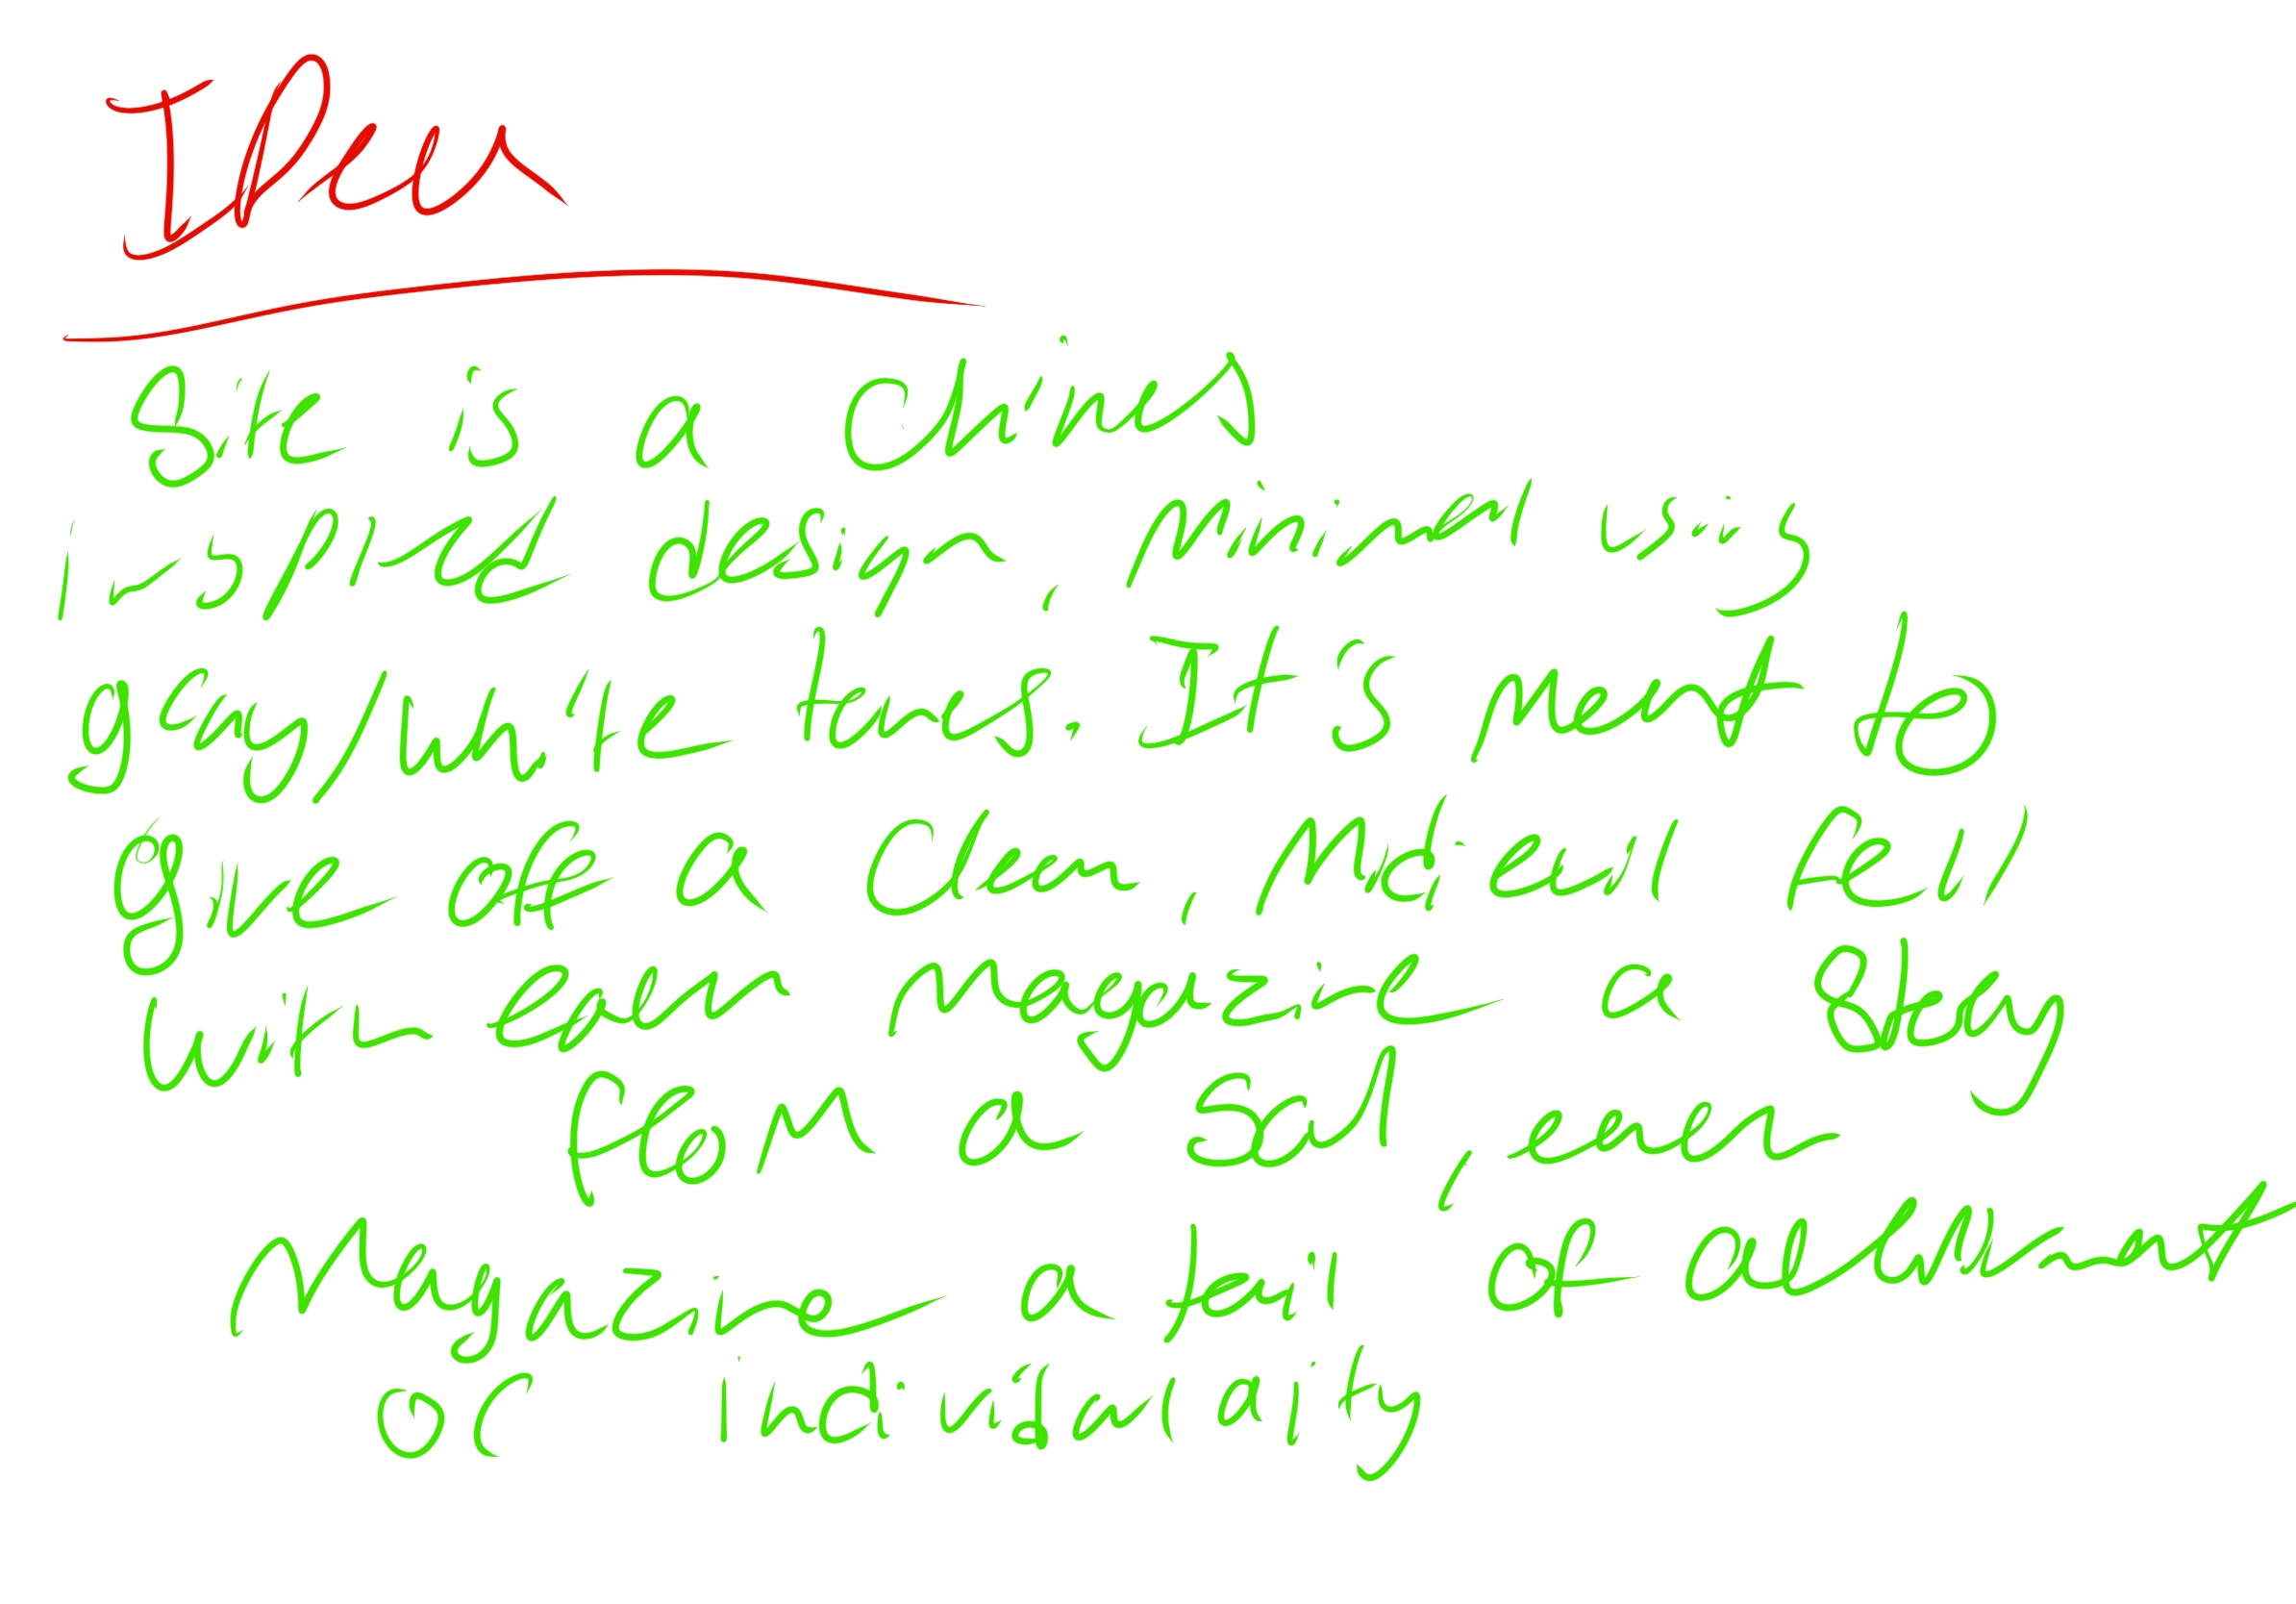 Idea
Site is a Chines
inspired design, minimal using
gray/white tones. It's ment to
give off a Clean, Medical feel
with each magazine a story
from a soul, each
Magazine a tail of
or